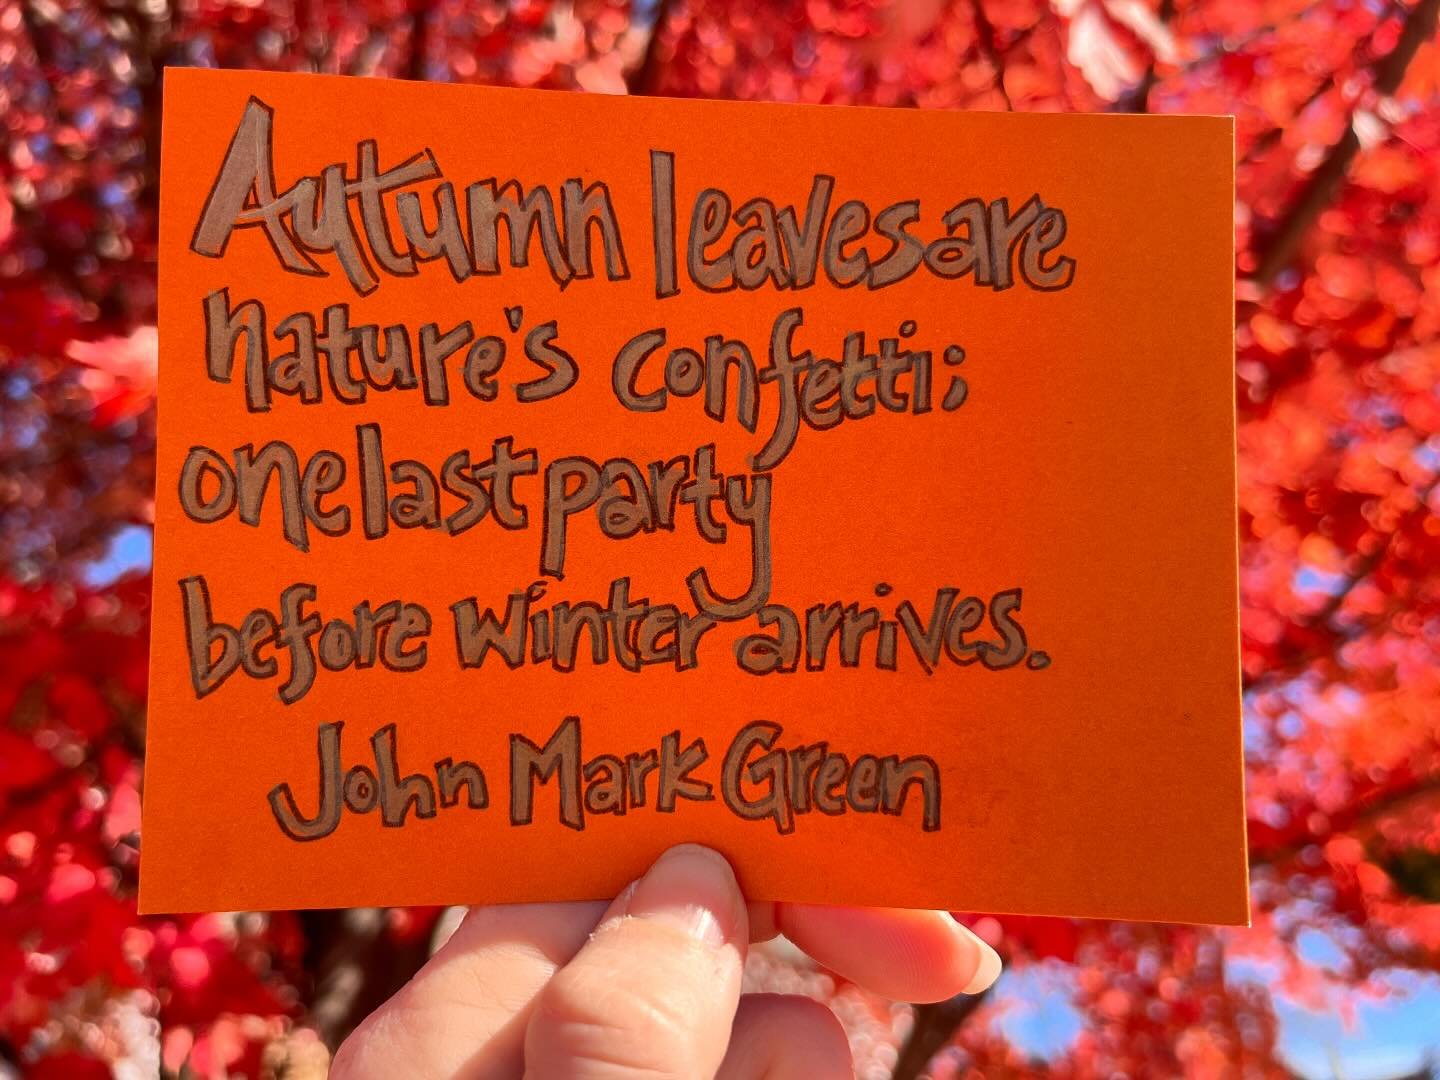 Autumn leaves are
nature's confetti;
one last party
before winter arrives.
John Mark Green